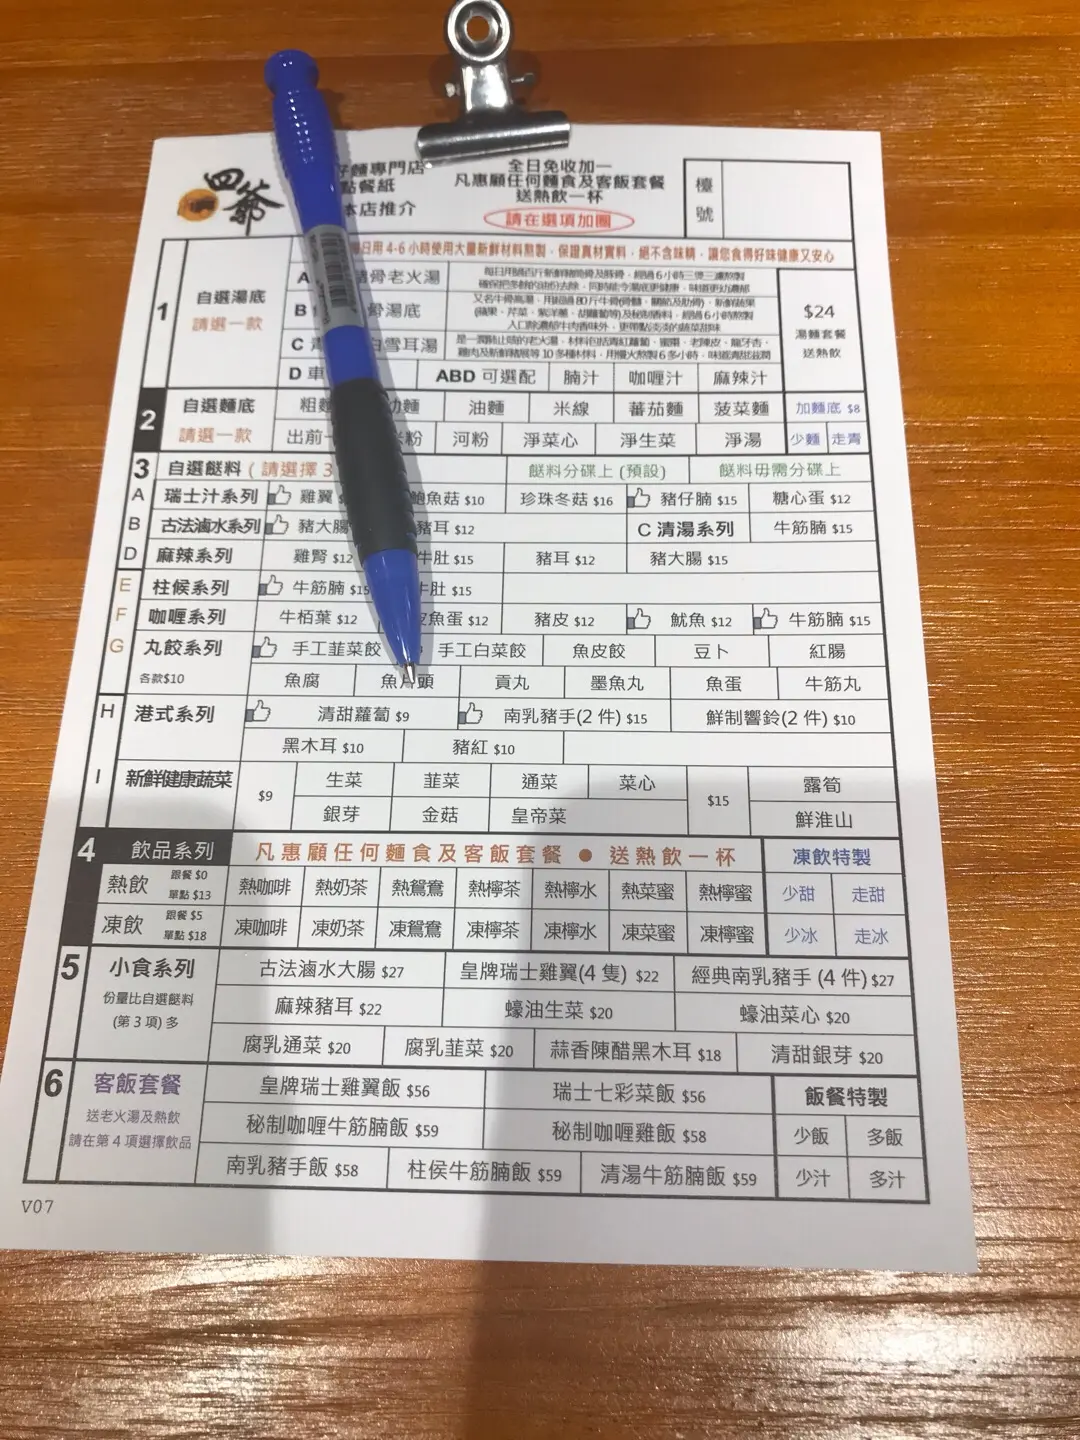 四爺
麵專門店
點餐紙
本店推介
全日免收加一
凡惠顧任何麵食及客飯套餐
送熱飲一杯
請在選項加圈
檯號
日用 4-6 小時使用大量新鮮材料熬製﹐保證真材實料﹐絕不含味精﹐讓您食得好味健康又安心
1 自選湯底 請選一款
A 豬骨老火湯
B 骨湯底
C 雪耳湯
D 車 ABD 可選配 腩汁 咖喱汁 麻辣汁
$24 湯麵套餐 送熱飲
2 自選麵底 請選一款
粗麵 幼麵 油麵 米線 蕃茄麵 菠菜麵 加麵底 $8
出前一 米粉 河粉 淨菜心 淨生菜 淨湯 少麵 走青
3 自選餸料 ( 請選擇 3 餸料分碟上 (預設) 餸料毋需分碟上
A 瑞士汁系列 雞翼 鮑魚菇 $10 珍珠冬菇 $16 豬仔腩 $15 糖心蛋 $12
B 古法滷水系列 豬大腸 豬耳 $12 C 清湯系列 牛筋腩 $15
D 麻辣系列 雞腎 $12 牛肚 $15 豬耳 $12 豬大腸 $15
E 柱候系列 牛筋腩 $15 牛肚 $15
F 咖喱系列 牛栢葉 $12 魚蛋 $12 豬皮 $12 魷魚 $12 牛筋腩 $15
G 丸餃系列 手工韮菜餃 手工白菜餃 魚皮餃 豆卜 紅腸
各款$10 魚腐 魚片頭 貢丸 墨魚丸 魚蛋 牛筋丸
H 港式系列 清甜蘿蔔 $9 南乳豬手(2 件) $15 鮮制響鈴(2 件) $10
黑木耳 $10 豬紅 $10
I 新鮮健康蔬菜 $9 生菜 韮菜 通菜 菜心 $15 露筍
銀芽 金菇 皇帝菜 鮮淮山
4 飲品系列 凡惠顧任何麵食及客飯套餐 ● 送熱飲一杯 凍飲特製
熱飲 跟餐 $0 單點 $13 熱咖啡 熱奶茶 熱鴛鴦 熱檸茶 熱檸水 熱菜蜜 熱檸蜜 少甜 走甜
凍飲 跟餐 $5 單點 $18 凍咖啡 凍奶茶 凍鴛鴦 凍檸茶 凍檸水 凍菜蜜 凍檸蜜 少冰 走冰
5 小食系列 古法滷水大腸 $27 皇牌瑞士雞翼(4 隻) $22 經典南乳豬手 (4 件) $27
份量比自選餸料 (第 3 項) 多 麻辣豬耳 $22 蠔油生菜 $20 蠔油菜心 $20
腐乳通菜 $20 腐乳韮菜 $20 蒜香陳醋黑木耳 $18 清甜銀芽 $20
6 客飯套餐 皇牌瑞士雞翼飯 $56 瑞士七彩菜飯 $56 飯餐特製
送老火湯及熱飲 請在第 4 項選擇飲品 秘制咖喱牛筋腩飯 $59 秘制咖喱雞飯 $58 少飯 多飯
南乳豬手飯 $58 柱侯牛筋腩飯 $59 清湯牛筋腩飯 $59 少汁 多汁
V07